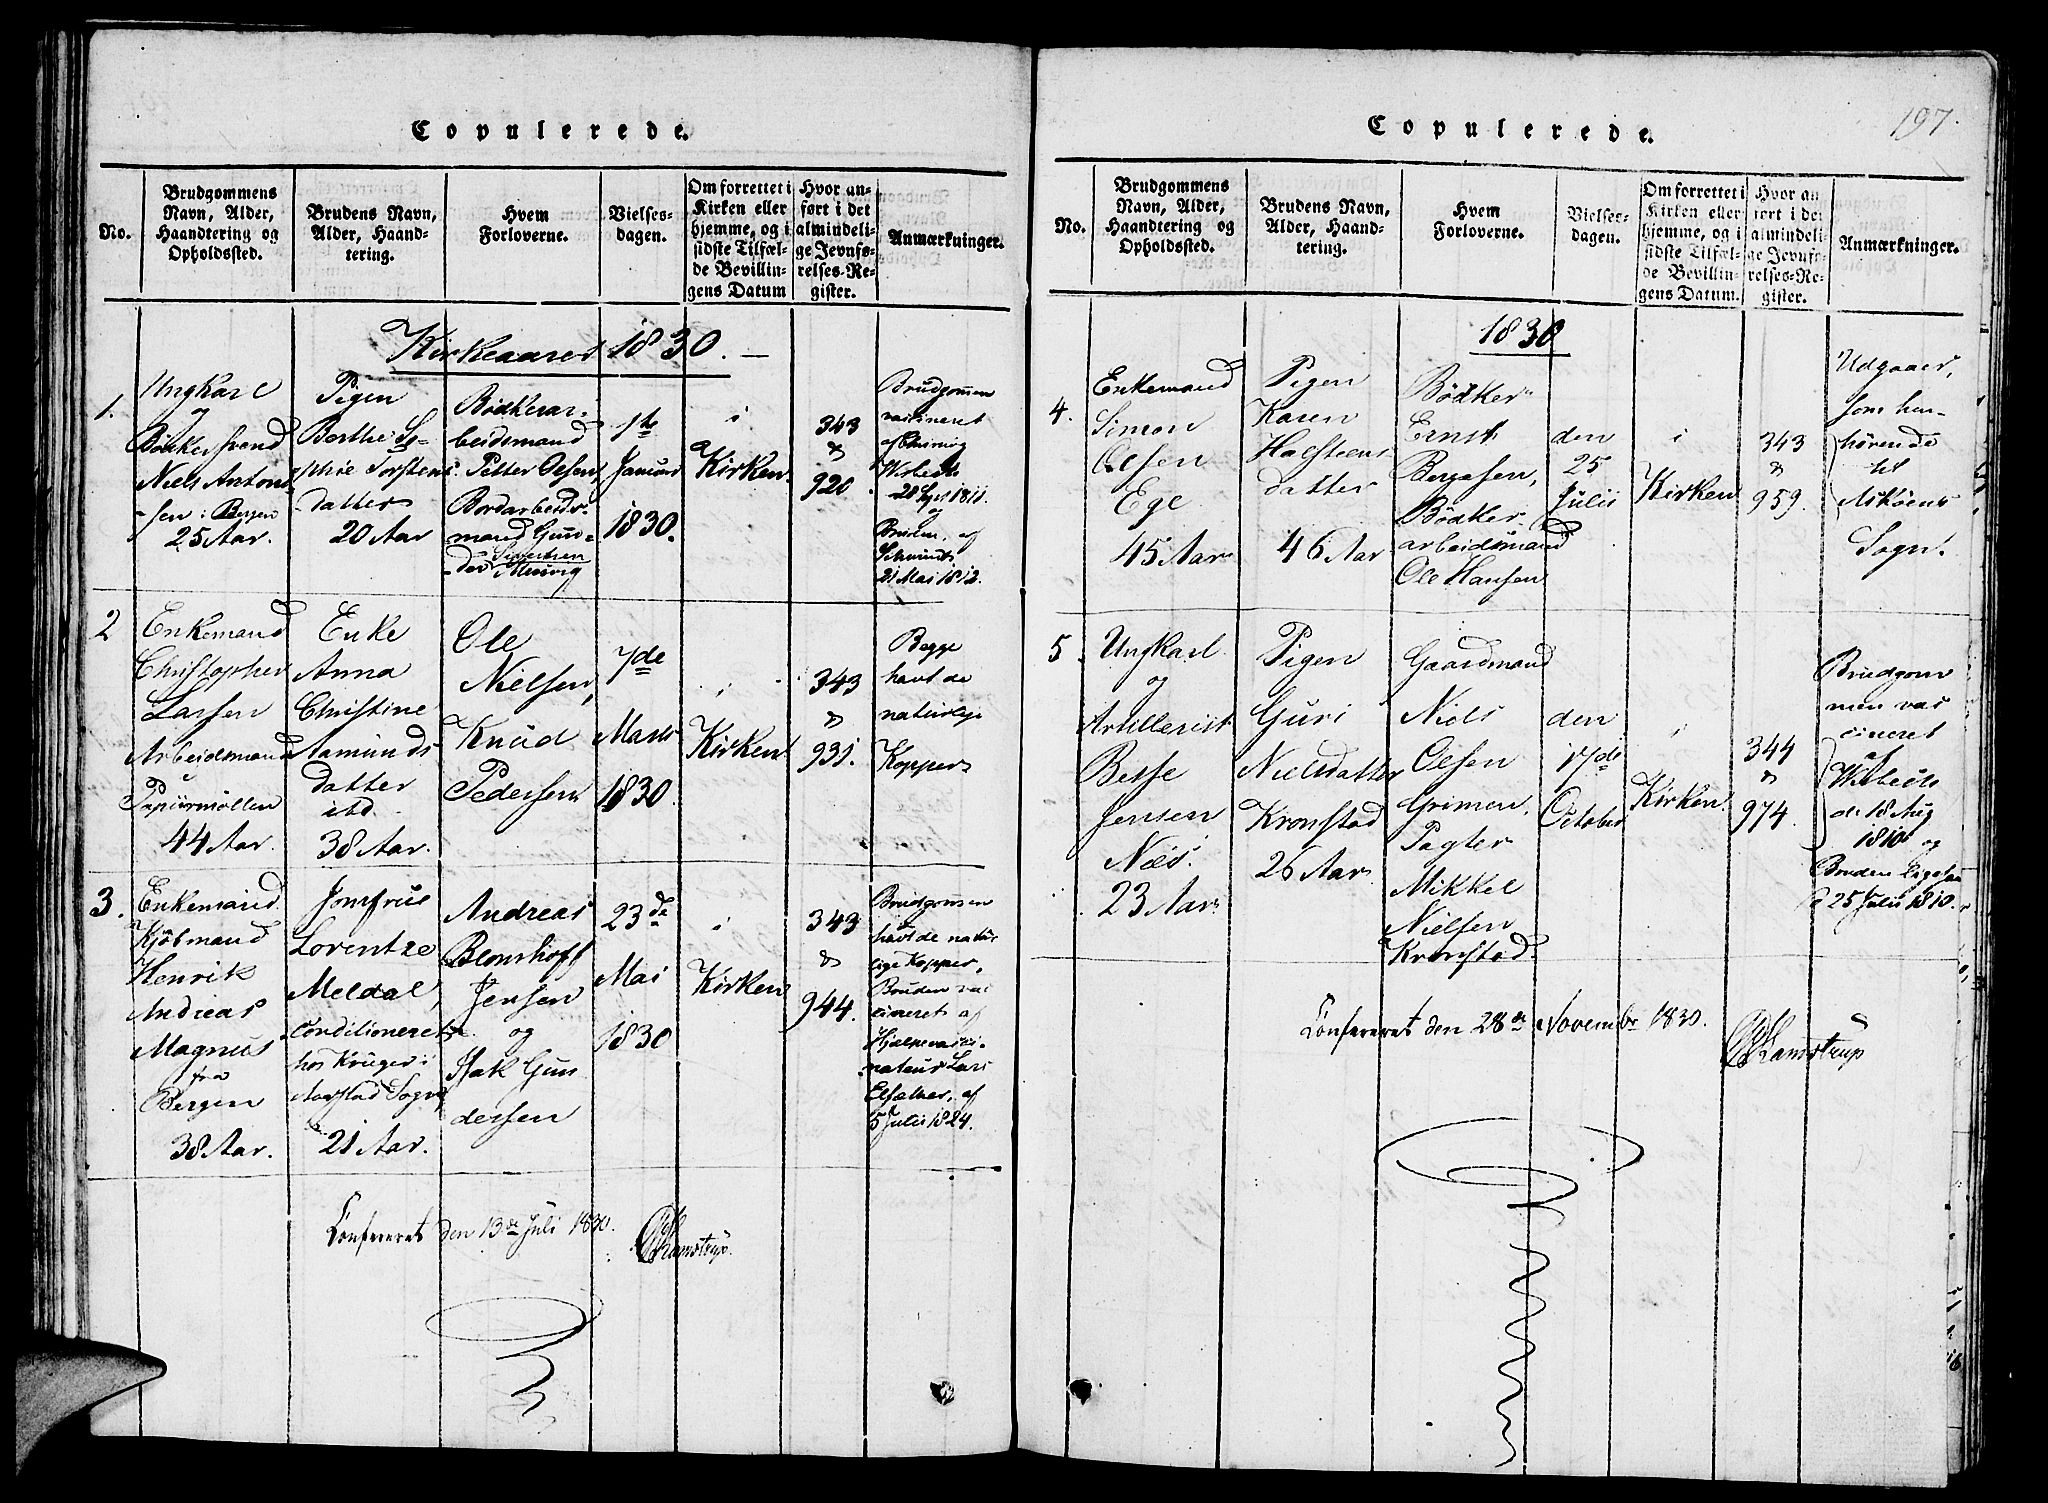 Copulerede.
No.
Brudgommens
Navn, Alder,
Haandtering og
Opholdssted.
Brudens Navn,
Alder, Haand-
tering.
Hvem
Forloverne.
Vielses-
dagen.
Om forrettet i
Kirken eller
hjemme, og i
sidste Tilfæl-
de Bevillin-
gens Datum
Hvor an-
ført i det
almindeli-
ge Jevnfø-
relses-Re-
gister.
Anmærkninger.
Kirkeaaret 1830. —
1.
Ungkarl
Bødkersvend
Niels Anton
sen i Bergen
25 Aar.
Pigen
Berthe So-
phie Torstens
datter
20 Aar
Bødkerar-
beidsmand
Petter Olsen,
Bordarbeids-
mand Gun-
der Sivertsen
1ste
Januar
1830.
i
Kirken
343
&
920
Brudgommen
vaccineret
af
Wisbech
og
Bruden af
Schmidt
21 Mai 1812.
2
Enkemand
Christopher
Larsen
Arbeidsmand
Papiirmøllen
44 Aar.
Enke
Anna
Christine
Aamunds
datter
ibd
38 Aar.
Ole
Nielsen,
Knud
Pedersen
7de
Marts
1830
i
Kirken
343
&
931.
Begge
havt de
naturlige
Kopper
3.
Enkemand
Kjøbmand
Henrik
Andreas
Magnus
fra
Bergen
38 Aar.
Jomfrue
Lorentze
Meldal,
Conditioneret
hos Krüger i
Aarstad Sogn
21 Aar.
Andreas
Blomhoff
Jensen
og
Isak Gun
dersen
23de
Mai
1830
i
Kirken
343
&
944.
Brudgommen
havt de natur
lige Kopper,
Bruden vac
cineret af
Hjelpevacci-
nateur Lars
af
5 Julii 1824.
Confereret den 13de Juli 1830.
Ramstrup.
197.
Copulerede.
No.
Brudgommens
Navn, Alder,
Haandtering og
Opholdssted.
Brudens Navn,
Alder, Haand-
tering.
Hvem
Forloverne.
Vielses-
dagen.
Om forrettet i
Kirken eller
hjemme, og i
sidste Tilfæl-
de Bevillin-
gens Datum.
Hvor an
ført i det
almindeli-
ge Jevnfø-
relses-Re-
gister.
Anmærkninger.
1830
4.
Enkemand
Simon
Olsen
Ege
45 Aar
Pigen
Karen
Halsteens
datter
46 Aar
Bødker
Ernst
Bergesen,
Bødker-
arbeidsmand
Ole Hansen
den
25
Julii
i
Kirken
343
&
959.
Udgaaer,
som hen-
hørende
til
Askøens
Sogn.
5.
Ungkarl
og
Artillerist
Besse
Jensen
Næs.
23 Aar
Pigen
Guri
Nielsdatter
Kronstad
26 Aar
Gaardmand
Niels
Olsen
Grimen,
Pagter
Mikkel
Nielsen
Kronstad
den
17de
October
i
Kirken
344
&
974.
Brudgom
men vac
cineret
af
Wisbech
d. 18 Aug
1810 og
Bruden ligesaa
25 Julii 1810.
Confereret den 28de Novembr 1830.
Ramstrup